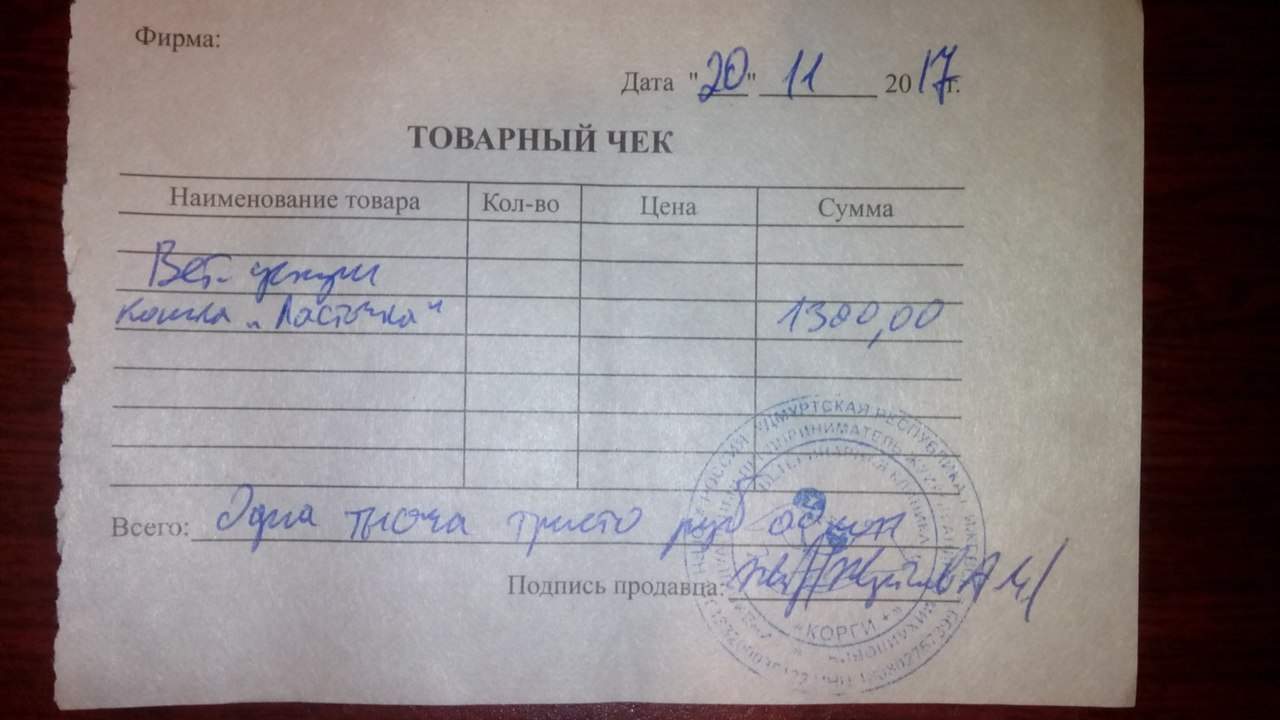 Фирма:
Дата "20" 11 2017г.
ТОВАРНЫЙ ЧЕК
Наименование товара Кол-во Цена Сумма
Вет.
кошка „Ласточка" 1300,00
Всего: Одна тысяча триста руб 00 коп
Подпись продавца:
РОССИЯ УДМУРТСКАЯ РЕСПУБЛИКА
ПРЕДПРИНИМАТЕЛЬ
ВЕТЕРИНАРНАЯ КЛИНИКА
«КОРГИ +»